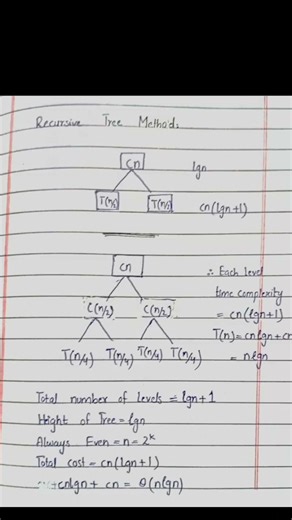 Recursive Tree Method:
cn
lgn
T(n/2) T(n/2)
cn(lgn+1)
cn
∴ Each level
time complexity
C(n/2) C(n/2)
= cn(lgn+1)
T(n)=cnlgn+cn
T(n/4) T(n/4) T(n/4) T(n/4)
= nlgn
Total number of levels = lgn+1
Height of Tree = lgn
Always Even = n = 2ᵏ
Total cost = cn(lgn+1)
cnlgn + cn = θ(nlgn)